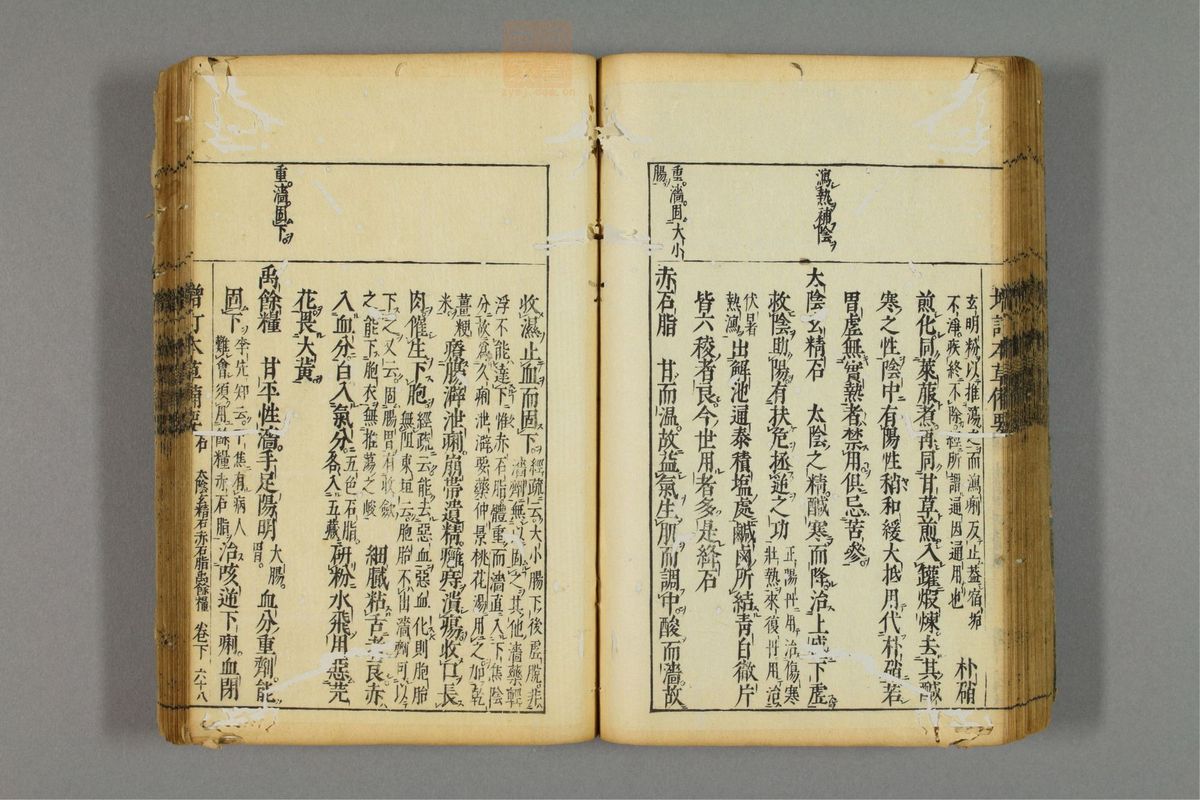 增訂本草備要
瀉熱補陰
重濇固大小
腸
玄明粉以推蕩之而瀉痢反止蓋宿垢
不淨疾終不除經所謂通因通用也
朴硝
煎化同萊菔煮再同甘草煎入罐煆煉去其鹹
寒之性陰中有陽性稍和緩大抵用代朴硝若
胃虛無實熱者禁用俱忌苦參
太陰玄精石　太陰之精鹹寒而降治上盛下虛
救陰助陽有扶危拯逆之功
正陽丹用治傷寒
壯熱來復丹用治
伏暑
熱瀉
出解池通泰積塩處鹹鹵所結靑白微片
皆六稜者良今世用者多是絳石
赤石脂　甘而温故益氣生肌而調中酸而濇故
收濕止血而固下
經疏云大小腸下後虛脫非
濇劑無以固之其他濇藥輕
浮不能達下惟赤石脂體重而濇直入下焦陰
分故爲久痢泄澼要藥仲景桃花湯用之加乾
薑粳
米
療腸澼泄痢崩帶遺精癰痔潰瘍收口長
肉催生下胞
經疏云能去惡血惡血化則胞胎
無阻東垣云胞胎不出濇劑可以
下之又云固腸胃有收斂
之能下胞衣無推蕩之峻
細膩粘舌者良赤
入血分白入氣分
五色石脂
各入五藏
研粉水飛用惡芫
花畏大黃
重濇固下
禹餘糧　甘平性濇手足陽明
大腸
胃
血分重劑能
固下
李先知云下焦有病人
難會須用餘糧赤石脂
治咳逆下痢血閉
增訂本草備要
石　太陰玄精石赤石脂禹餘糧　卷下　六十八